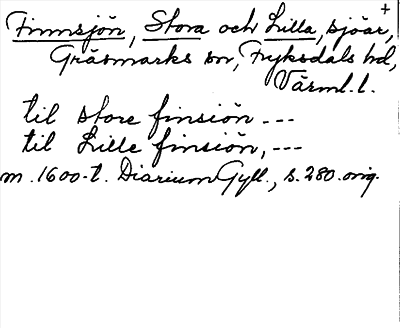 Finnsjön, Stora och Lilla, sjöar, +
Gräsmarks sn, Fryksdals hd,
Värml. l.
til store finsiön ---
til Lille finsiön, ---
m. 1600-t. Diarium Gyll., s. 280. orig.